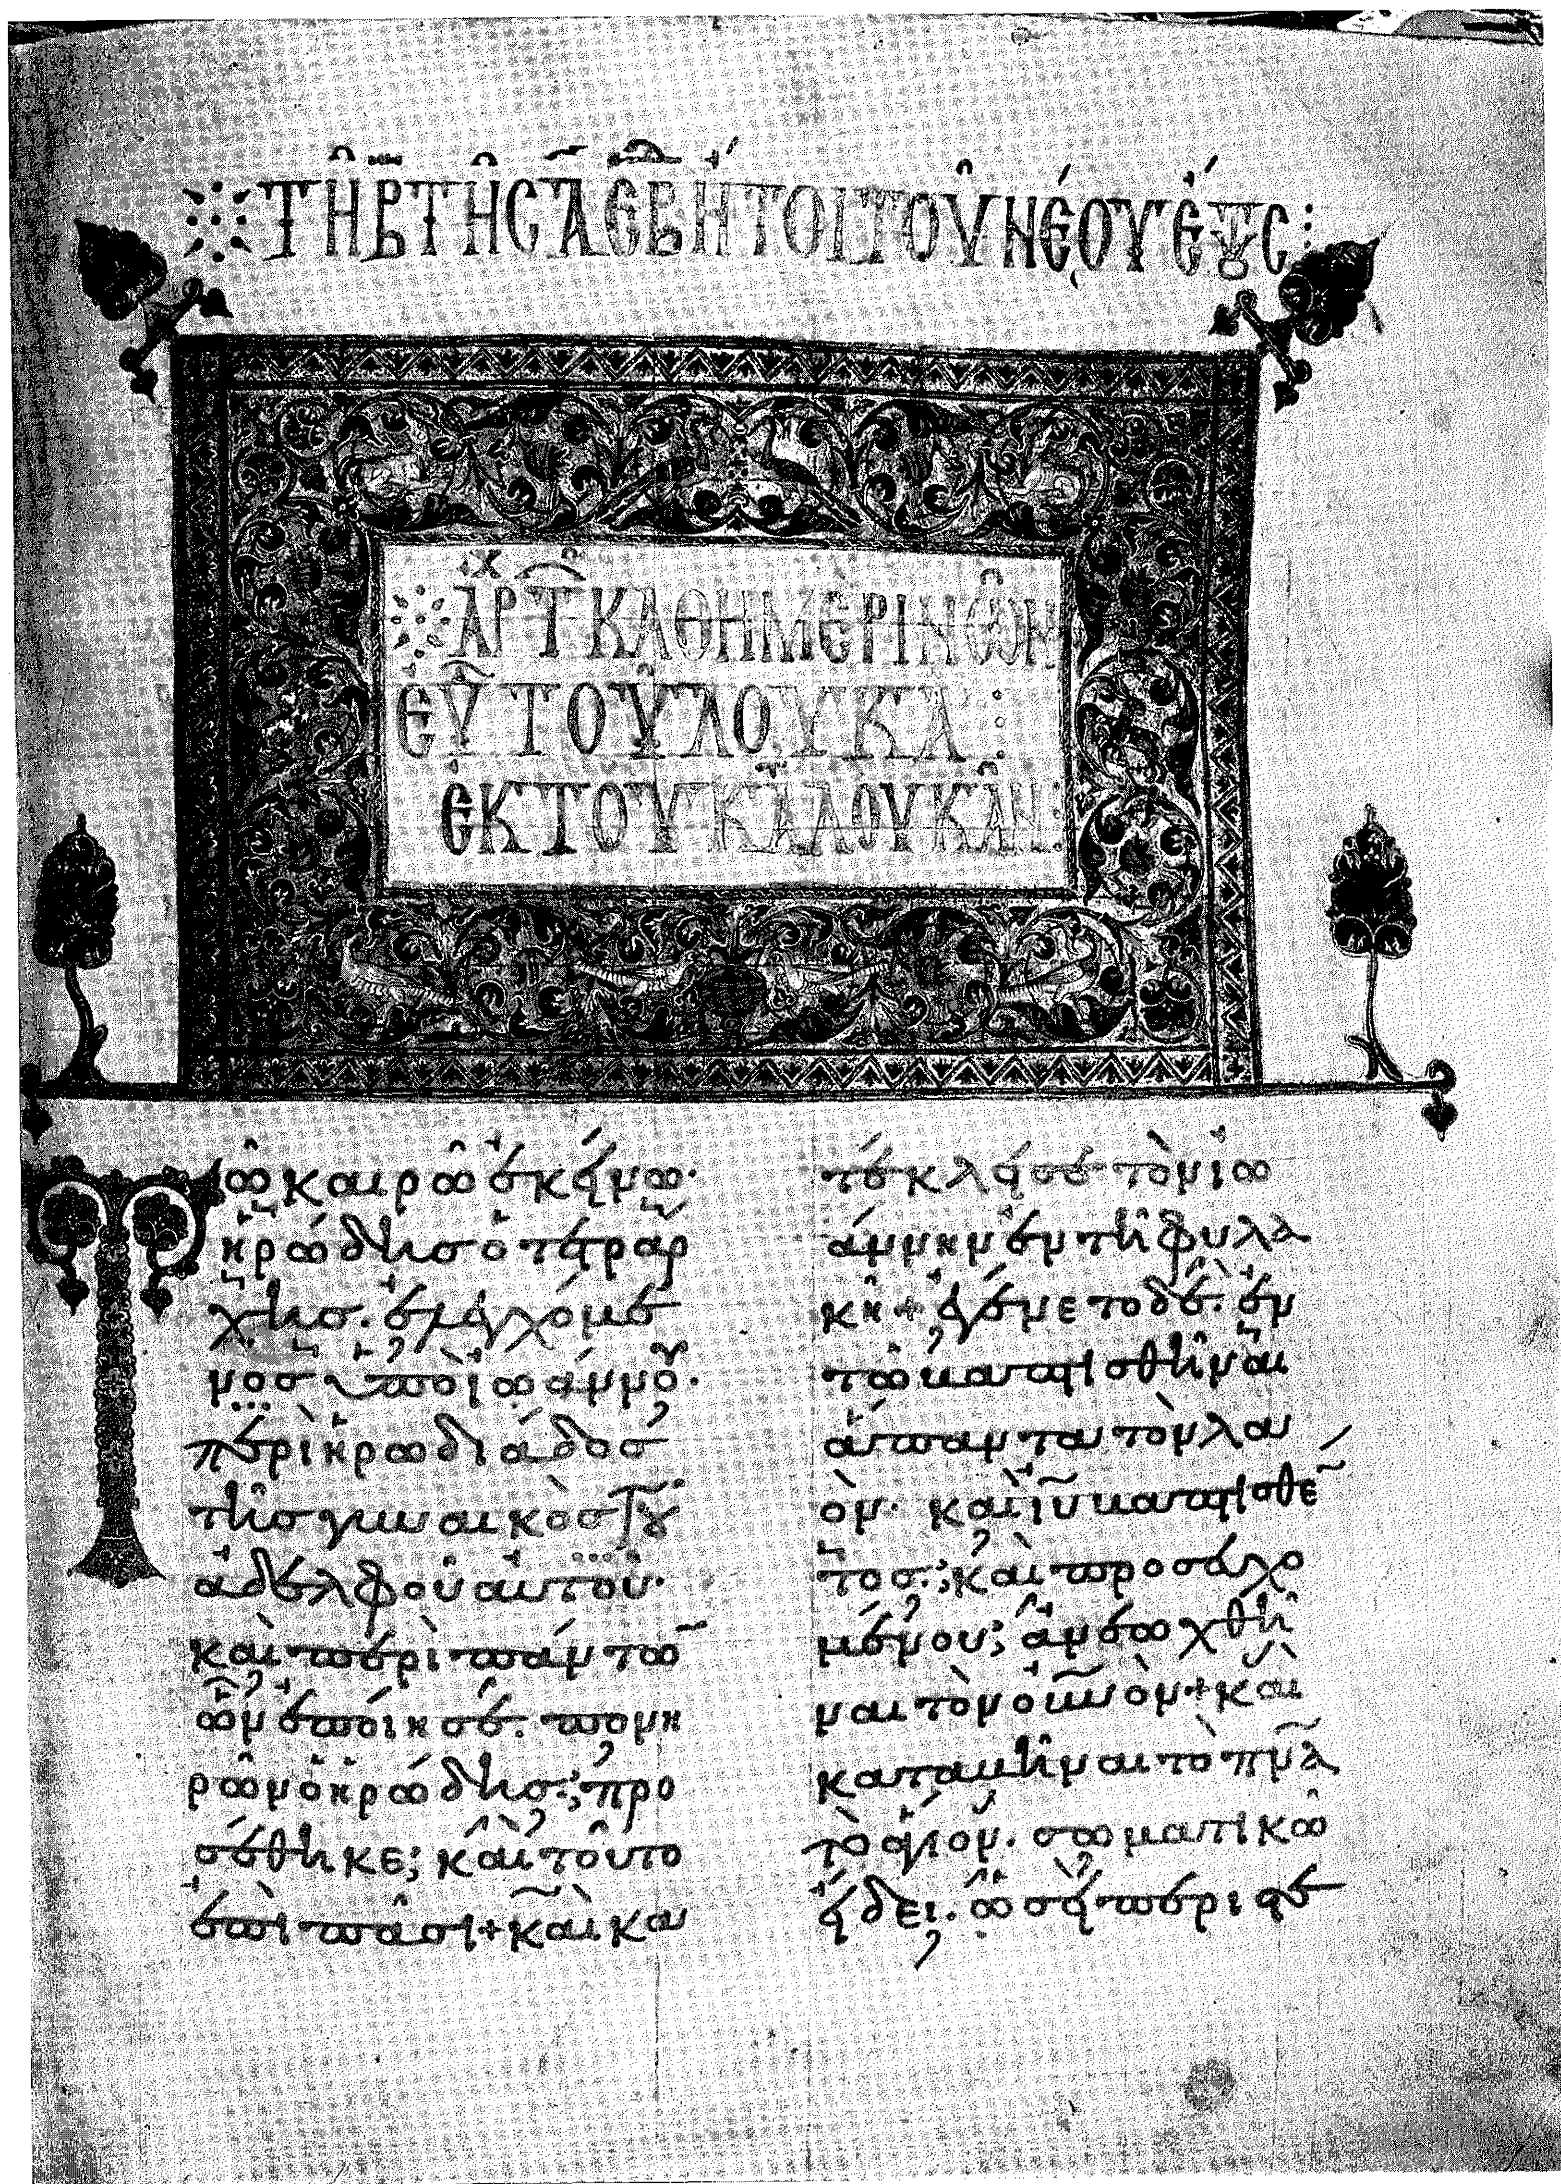 ΤΗ Β ΤΗΣ Α ΕΒ ΗΤΟΙ ΤΟΥ ΝΕΟΥ ΕΤΟΥΣ:
ΑΡΧ ΤΩΝ ΚΑΘΗΜΕΡΙΝΩΝ
ΕΥ ΤΟΥ ΛΟΥΚΑ :
ΕΚ ΤΟΥ ΚΑΤΑ ΛΟΥΚΑΝ:
Τῶ καιρῶ ἐκείνω·
ἡρώδης ὁ τετραάρ
χης. ἐλεγχόμε
νος ὑπὸ ἰωάννου·
περὶ ἡρωδιάδος
τῆς γυναικὸς τοῦ
ἀδελφοῦ αὐτοῦ·
καὶ περὶ πάντων
ὧν ἐποίησε. πονη
ρῶν ὁ ἡρώδης; προ
σέθηκε; καὶ τοῦτο
ἐπὶ πᾶσι+ καὶ κα
τέκλεισε τὸν ἰω
άννην ἐν τῆ φυλα
κῆ+ ἐγένετο δὲ. ἐν
τῶ βαπτισθῆναι
ἅπαντα τὸν λα
όν· καὶ ἰυ βαπτισθέν
τος; καὶ προσευχο
μένου; ἀνεωχθῆ
ναι τὸν οὐνὸν+ καὶ
καταβῆναι τὸ πνα
τὸ ἅγιον. σωματικῶ
εἴδει. ὡσεὶ περιστε